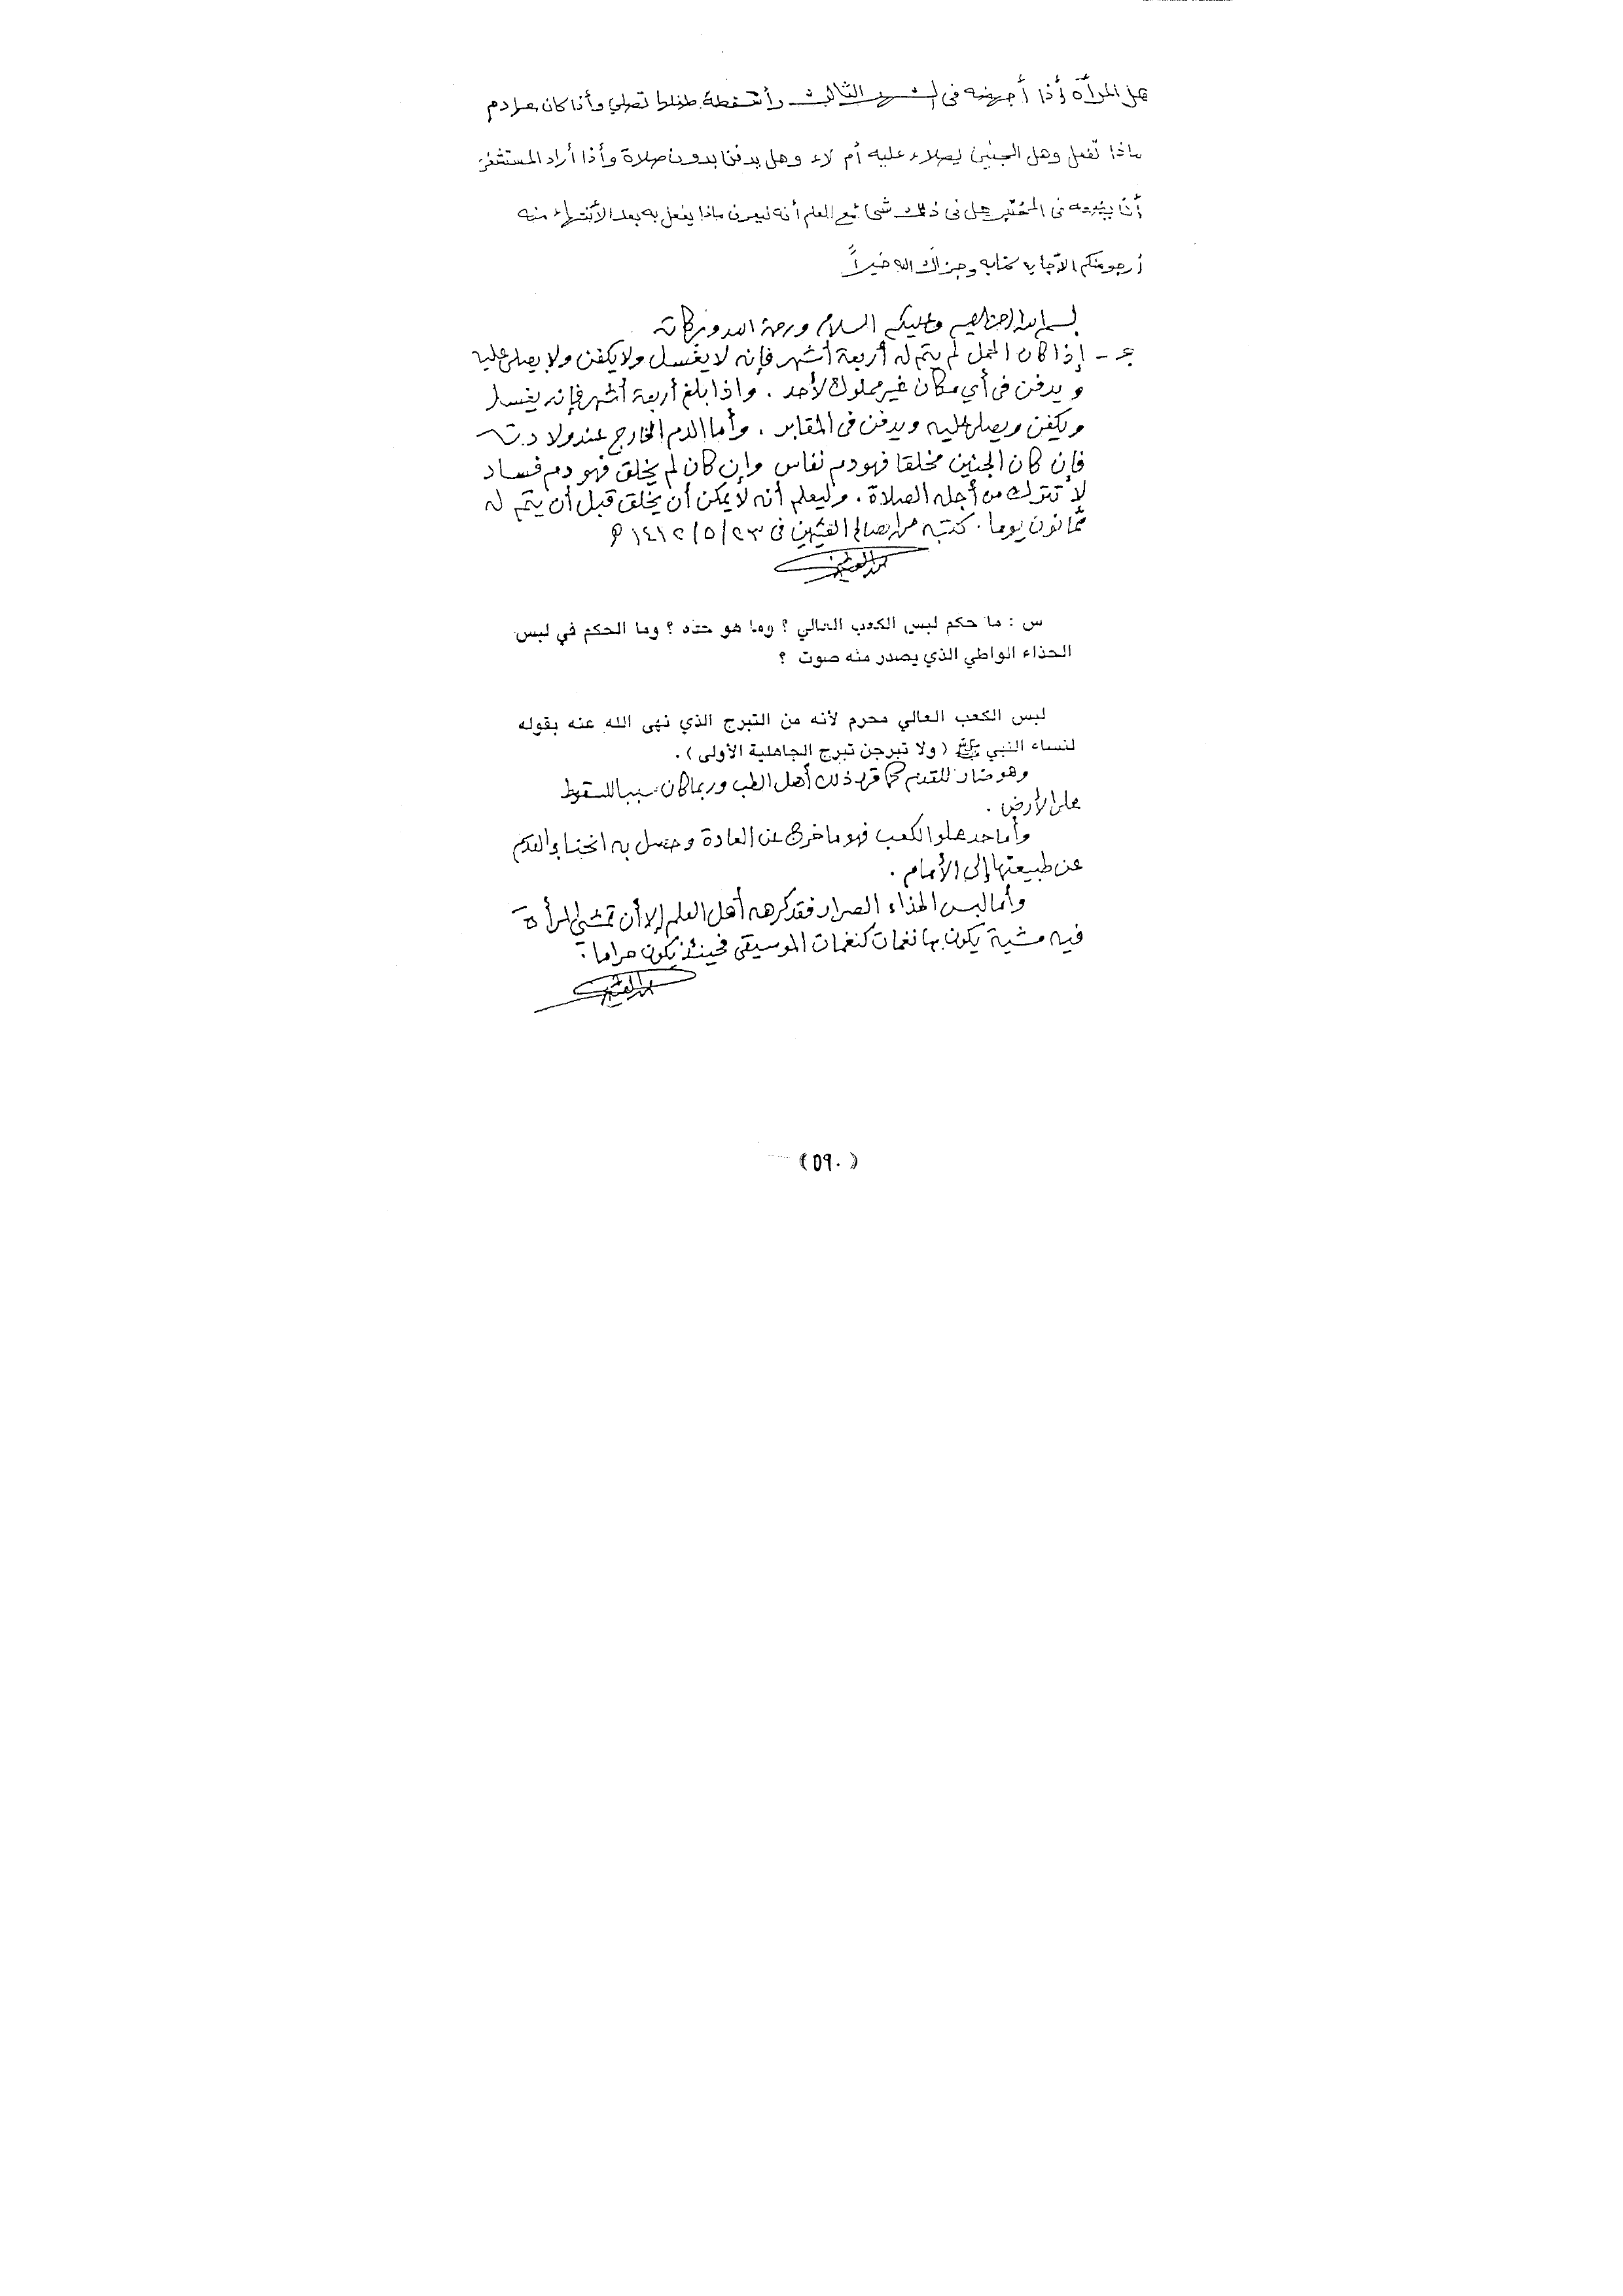 هل المرأة أذا أجهضه في الشهر الثالث وأسقطة طفلها تصلي وأذا كان عـ دم
ماذا تفعل وهل الجنين يصلاء عليه أم لاء وهل يدفن بدون صلاة وأذا أراد المستشفى
أن في المختبر هل في ذلك شيئ مع العلم أنه ماذا يفعل به بعد الأنتهاء منه
أرجو منكم الأجابه كتابه وجزاك الله خيراً
بسم الله الرحمن الرحيم وعليكم السلام ورحمة الله وبركاته
جـ - إذا كان الحمل لم يتم له أربعة أشهر فإنه لا يغسل ولا يكفن ولا يصلى عليه
ويدفن في أي مكان غير مملوك لأحد . واذا بلغ أربعة أشهر فإنه يغسل
ويكفن ويصلى عليه ويدفن في المقابر . وأما الدم الخارج عند ولادته
فإن كان الجنين مخلقا فهو دم نفاس وإن كان لم يخلق فهو دم فساد
لا تترك من أجله الصلاة . وليعلم أنه لا يمكن أن يخلق قبل أن يتم له
ثمانون يوما . كتبه محمد الصالح العثيمين في ٢٣/٥/١٤١٢ هـ
محمد العثيمين
س : ما حكم لبس الكعب العالي ؟ وما هو حده ؟ وما الحكم في لبس
الحذاء الواطي الذي يصدر منه صوت ؟
لبس الكعب العالي محرم لأنه من التبرج الذي نهى الله عنه بقوله
لنساء النبي ﷺ (ولا تبرجن تبرج الجاهلية الأولى) .
وهو ضار للقدم كما قرر ذلك أهل الطب وربما كان سببا للسقوط
على الأرض .
وأما حد علو الكعب فهو ما خرج عن العادة وحصل به انحناء القدم
عن طبيعتها إلى الأمام .
وأما لبس الحذاء الصرار فقد كرهه أهل العلم إلا أن تمشي المرأة
فيه مشية يكون بها نغمات كنغمات الموسيقى فحينئذ يكون حراما .
محمد العثيمين
(٥٩٠)